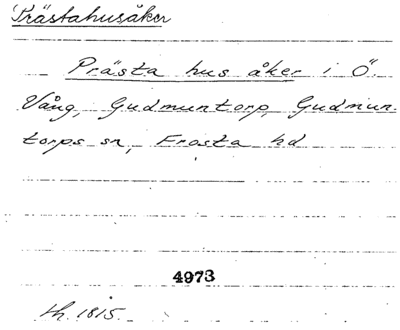 Prästahusåker
Prästa hus åker i Ö.
Vång, Gudmuntorp, Gudmun-
torps sn, Frosta hd
4973
th. 1815.